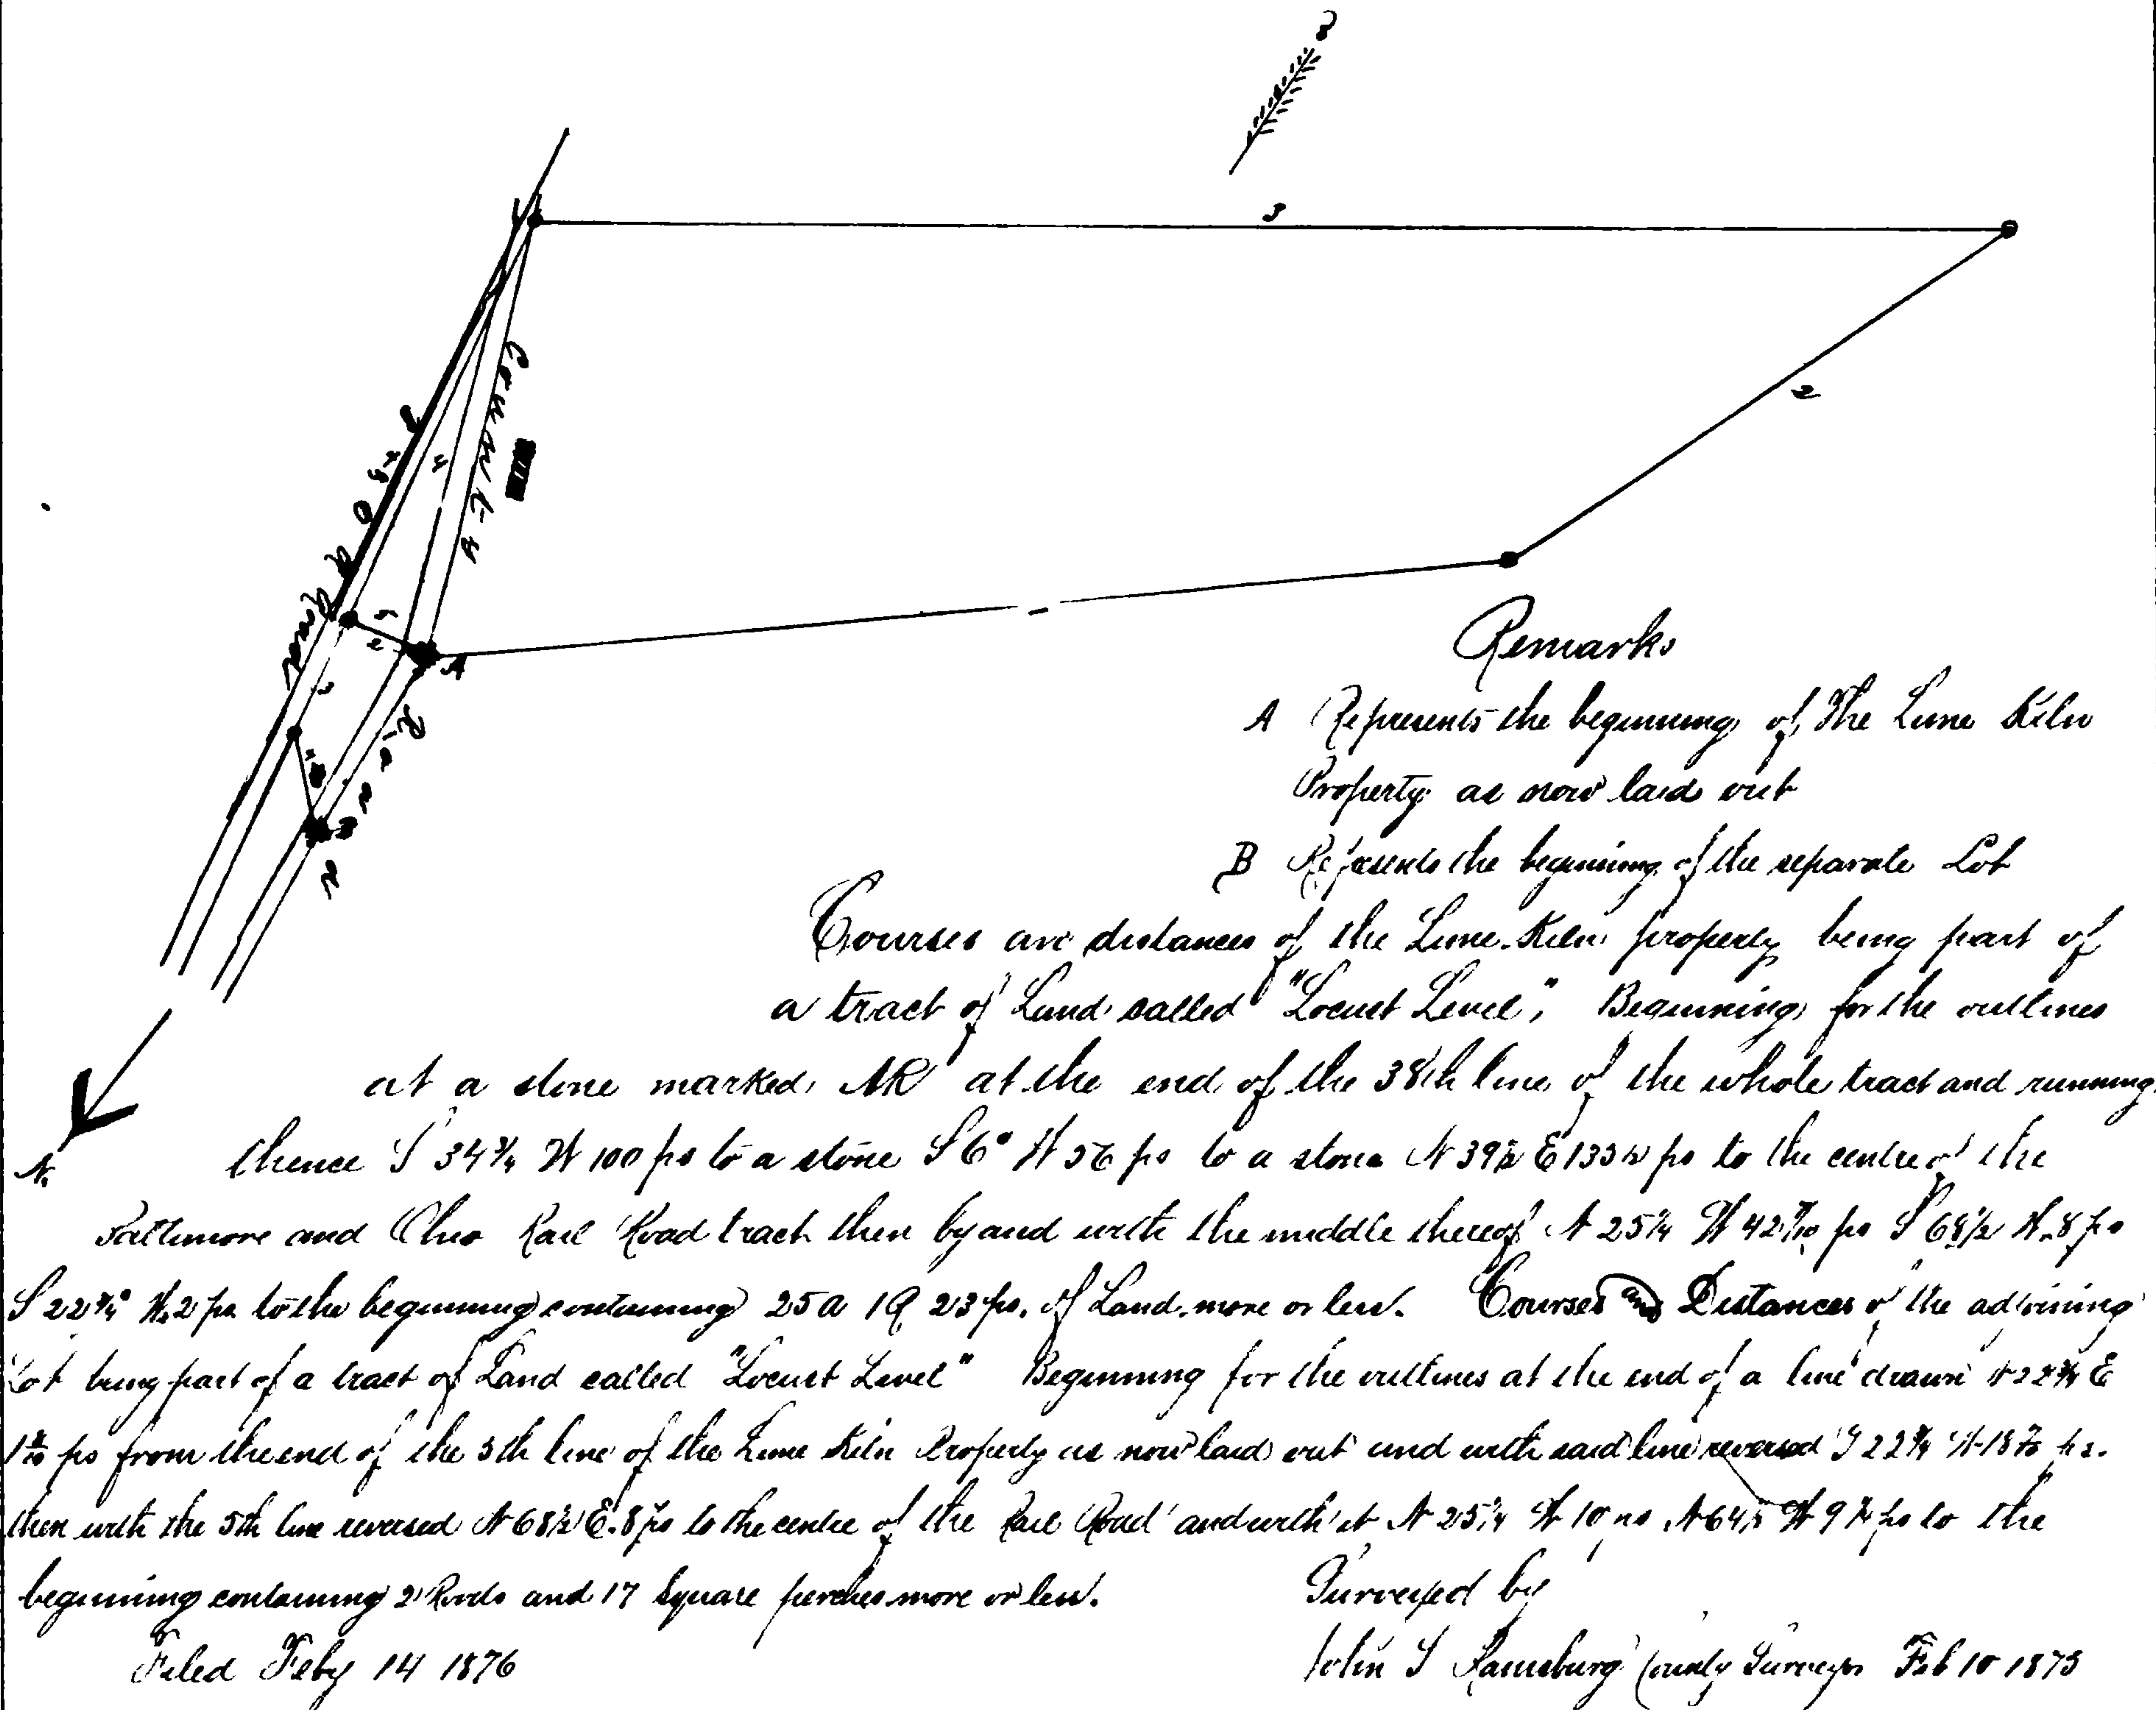 3
2
4
County
B & O R Road
5
2
3
A
Road
B
N.
Remarks
A Represents the beginning of The Lime Kiln
Property as now laid out
B Represents the beginning of the separate Lot
Courses and distances of the Lime Kiln property being part of
a tract of Land called "Locust Level", Beginning for the outlines
at a stone marked at the end of the 38th line of the whole tract and running
thence S 34 3/4 W 100 ps to a stone S 6° W 56 ps to a stone N 39 1/2 E 133 1/2 ps to the centre of the
Baltimore and Ohio Rail Road track then by and with the middle thereof N 25 1/4 W 42 7/10 ps S 68 1/2 W. 8 ps
S 22 3/4° W. 2 ps. to the beginning containing 25 a 1 R 23 ps. of Land more or less. Courses and Distances of the adjoining
Lot being part of a tract of Land called "Locust Level" Beginning for the outlines at the end of a line drawn N 22 3/4 E
ps from the end of the 5th line of the Lime Kiln Property as now laid out and with said line reversed S 22 3/4 W ps.
then with the 5th line reversed N 68 1/2 E. 8 ps to the centre of the Rail Road and with it N 25 1/4 W 10 ps N 64 W 9 ps to the
beginning containing 2 Roods and 17 Square perches more or less.
Surveyed by
Filed Feby 14 1876
John S Ramsburg County Surveyor Feb 10 1875